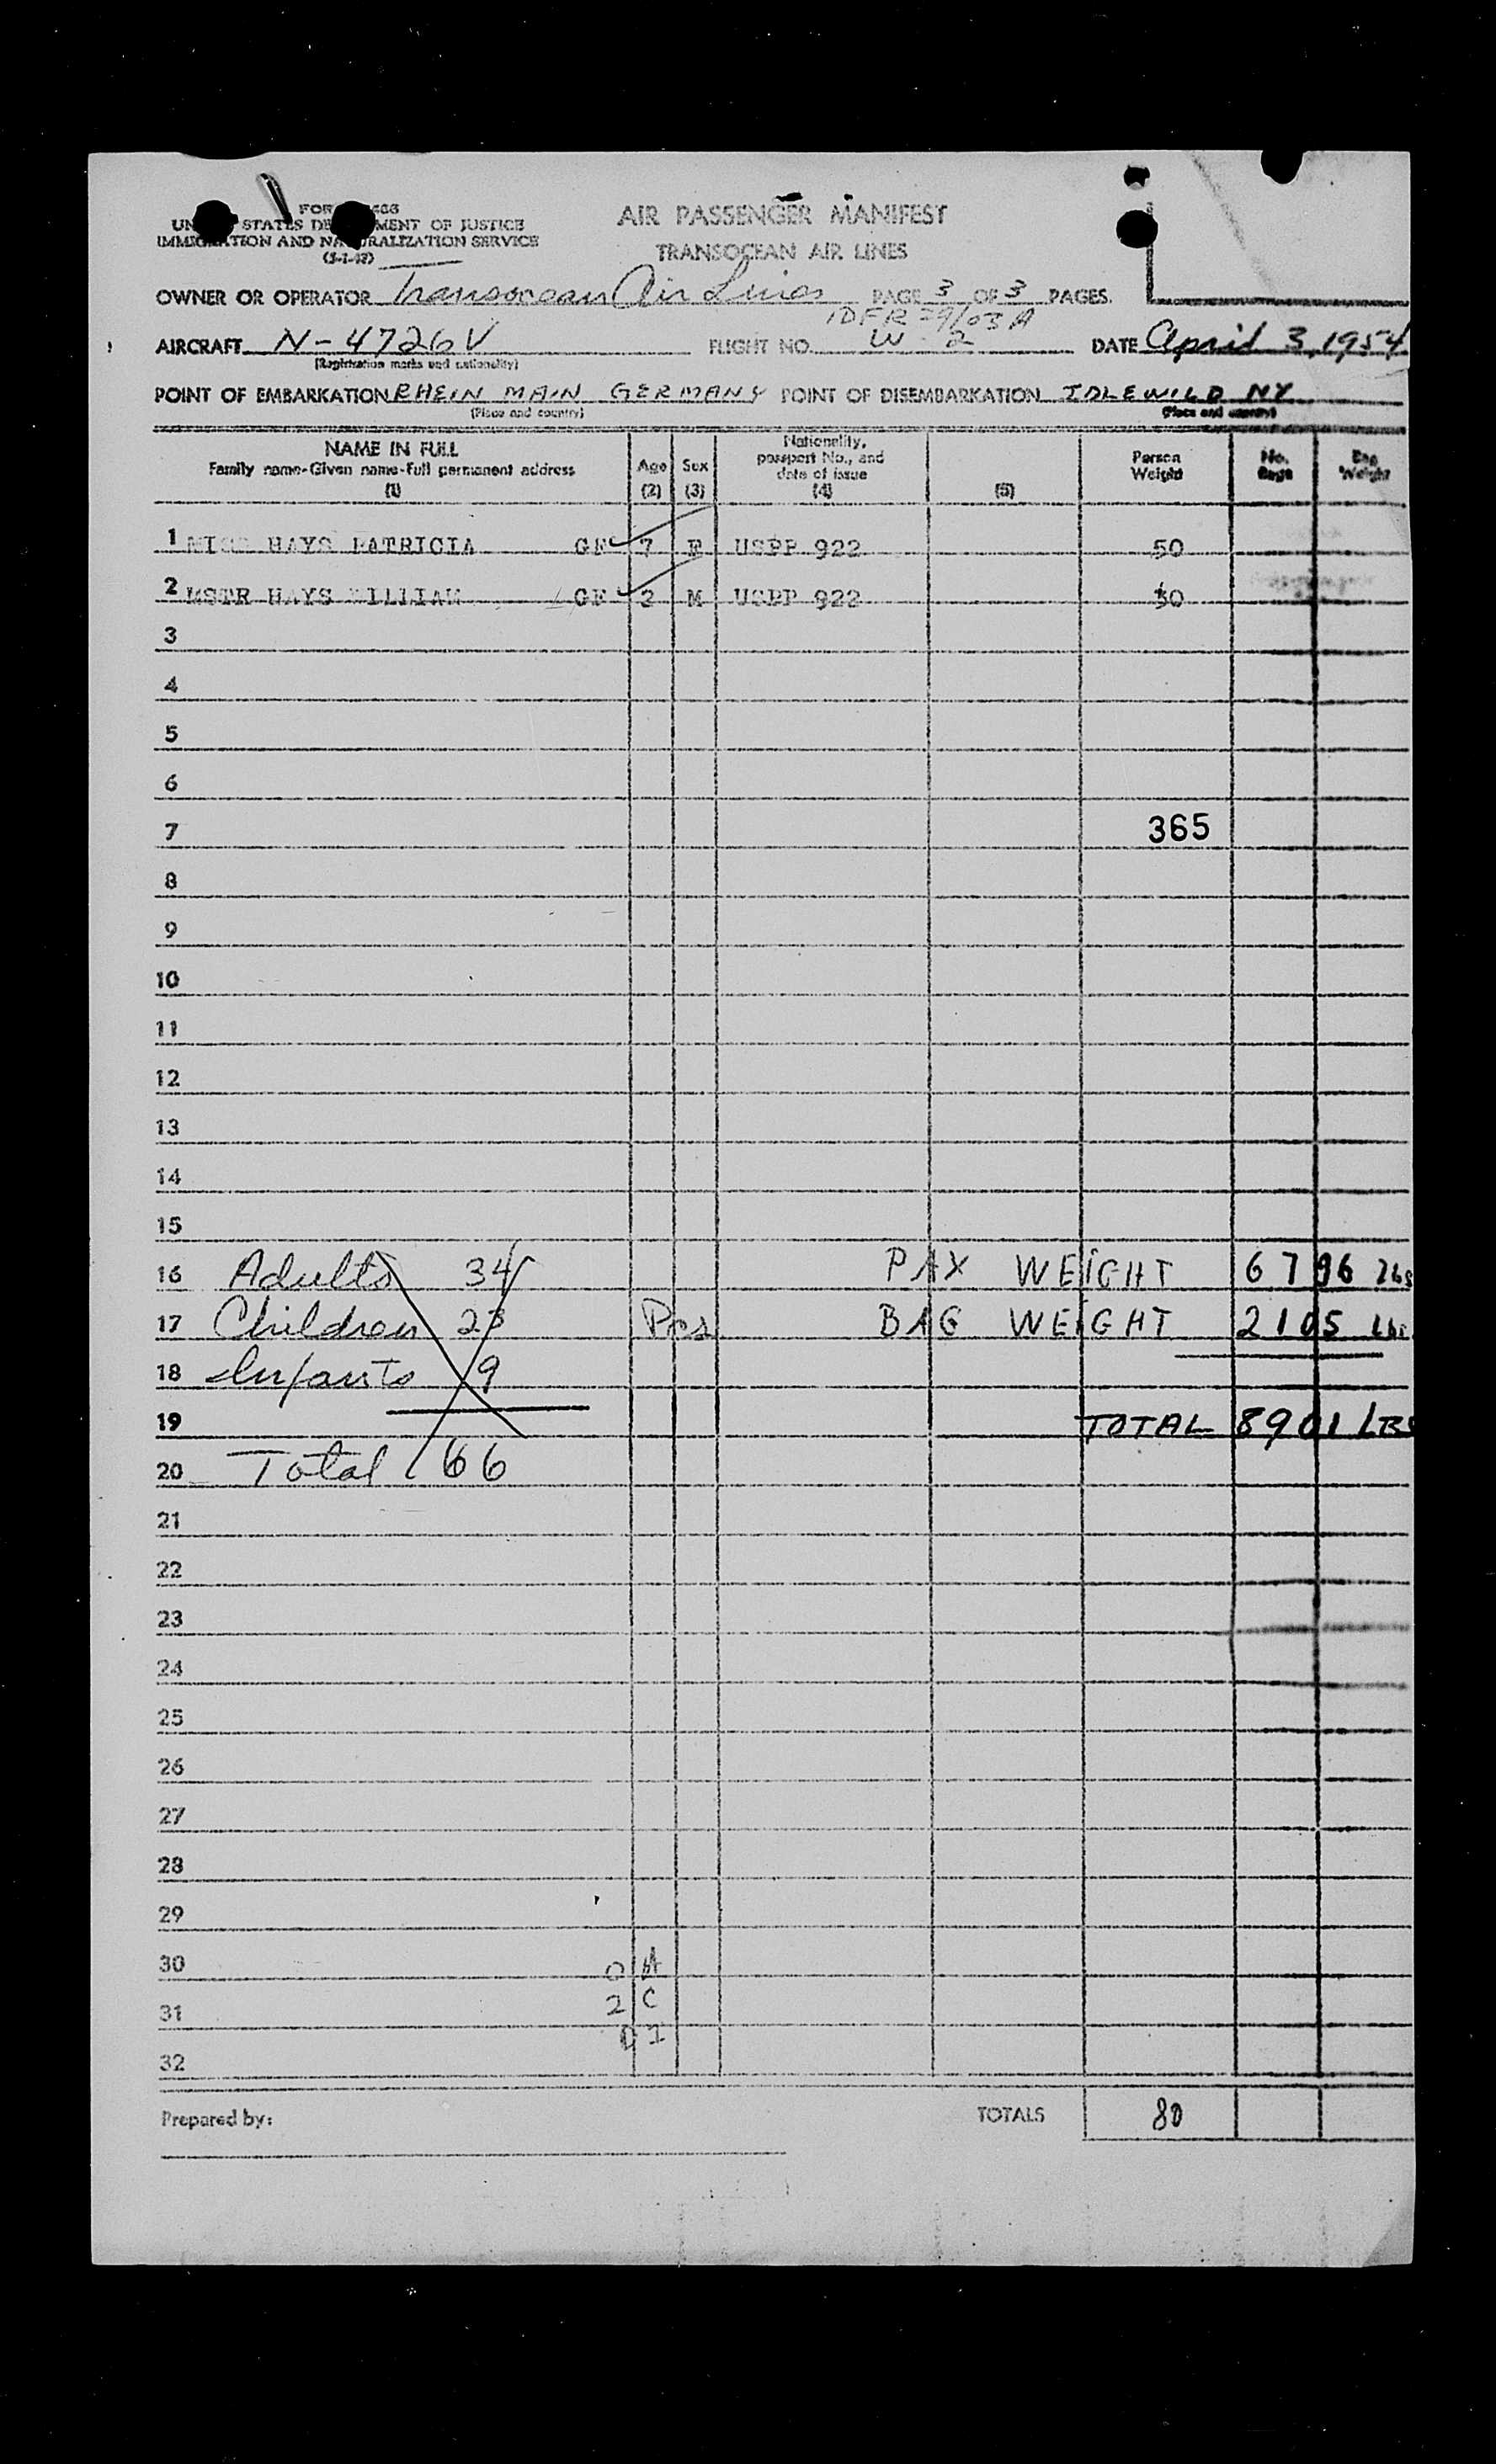 FOR
AIR PASSENGER MANIFEST
UNITED STATES DEPARTMENT OF JUSTICE
IMMIGRATION AND NATURALIZATION SERVICE
TRANSOCEAN AIR LINES
OWNER OR OPERATOR Transocean Air Lines PAGE 3 OF 3 PAGES.
AIRCRAFT N-4726V FLIGHT NO. W-2 DATE April 3, 1954
(Registration marks and nationality)
POINT OF EMBARKATION RHEIN MAIN GERMANY POINT OF DISEMBARKATION IDLEWILD NY
(Place and country) (Place and country)
NAME IN FULL Age Sex Nationality, passport No., and date of issue Person Weight No. Bags Bag Weight
Family name-Given name-Full permanent address
(1) (2) (3) (4) (5)
1 MISS HAYS PATRICIA GF 7 F USPP 922 50
2 MSTR HAYS WILLIAM GF 2 M USPP 922 30
3
4
5
6
7 365
8
9
10
11
12
13
14
15
16 Adults 34 PAX WEIGHT 6796 lbs
17 Children 23 Pcs BAG WEIGHT 2105 Lbs
18 Infants 9
19 TOTAL 8901 LBS
20 Total 66
21
22
23
24
25
26
27
28
29
30 0 A
31 2 C
0 I
32
Prepared by: TOTALS 80